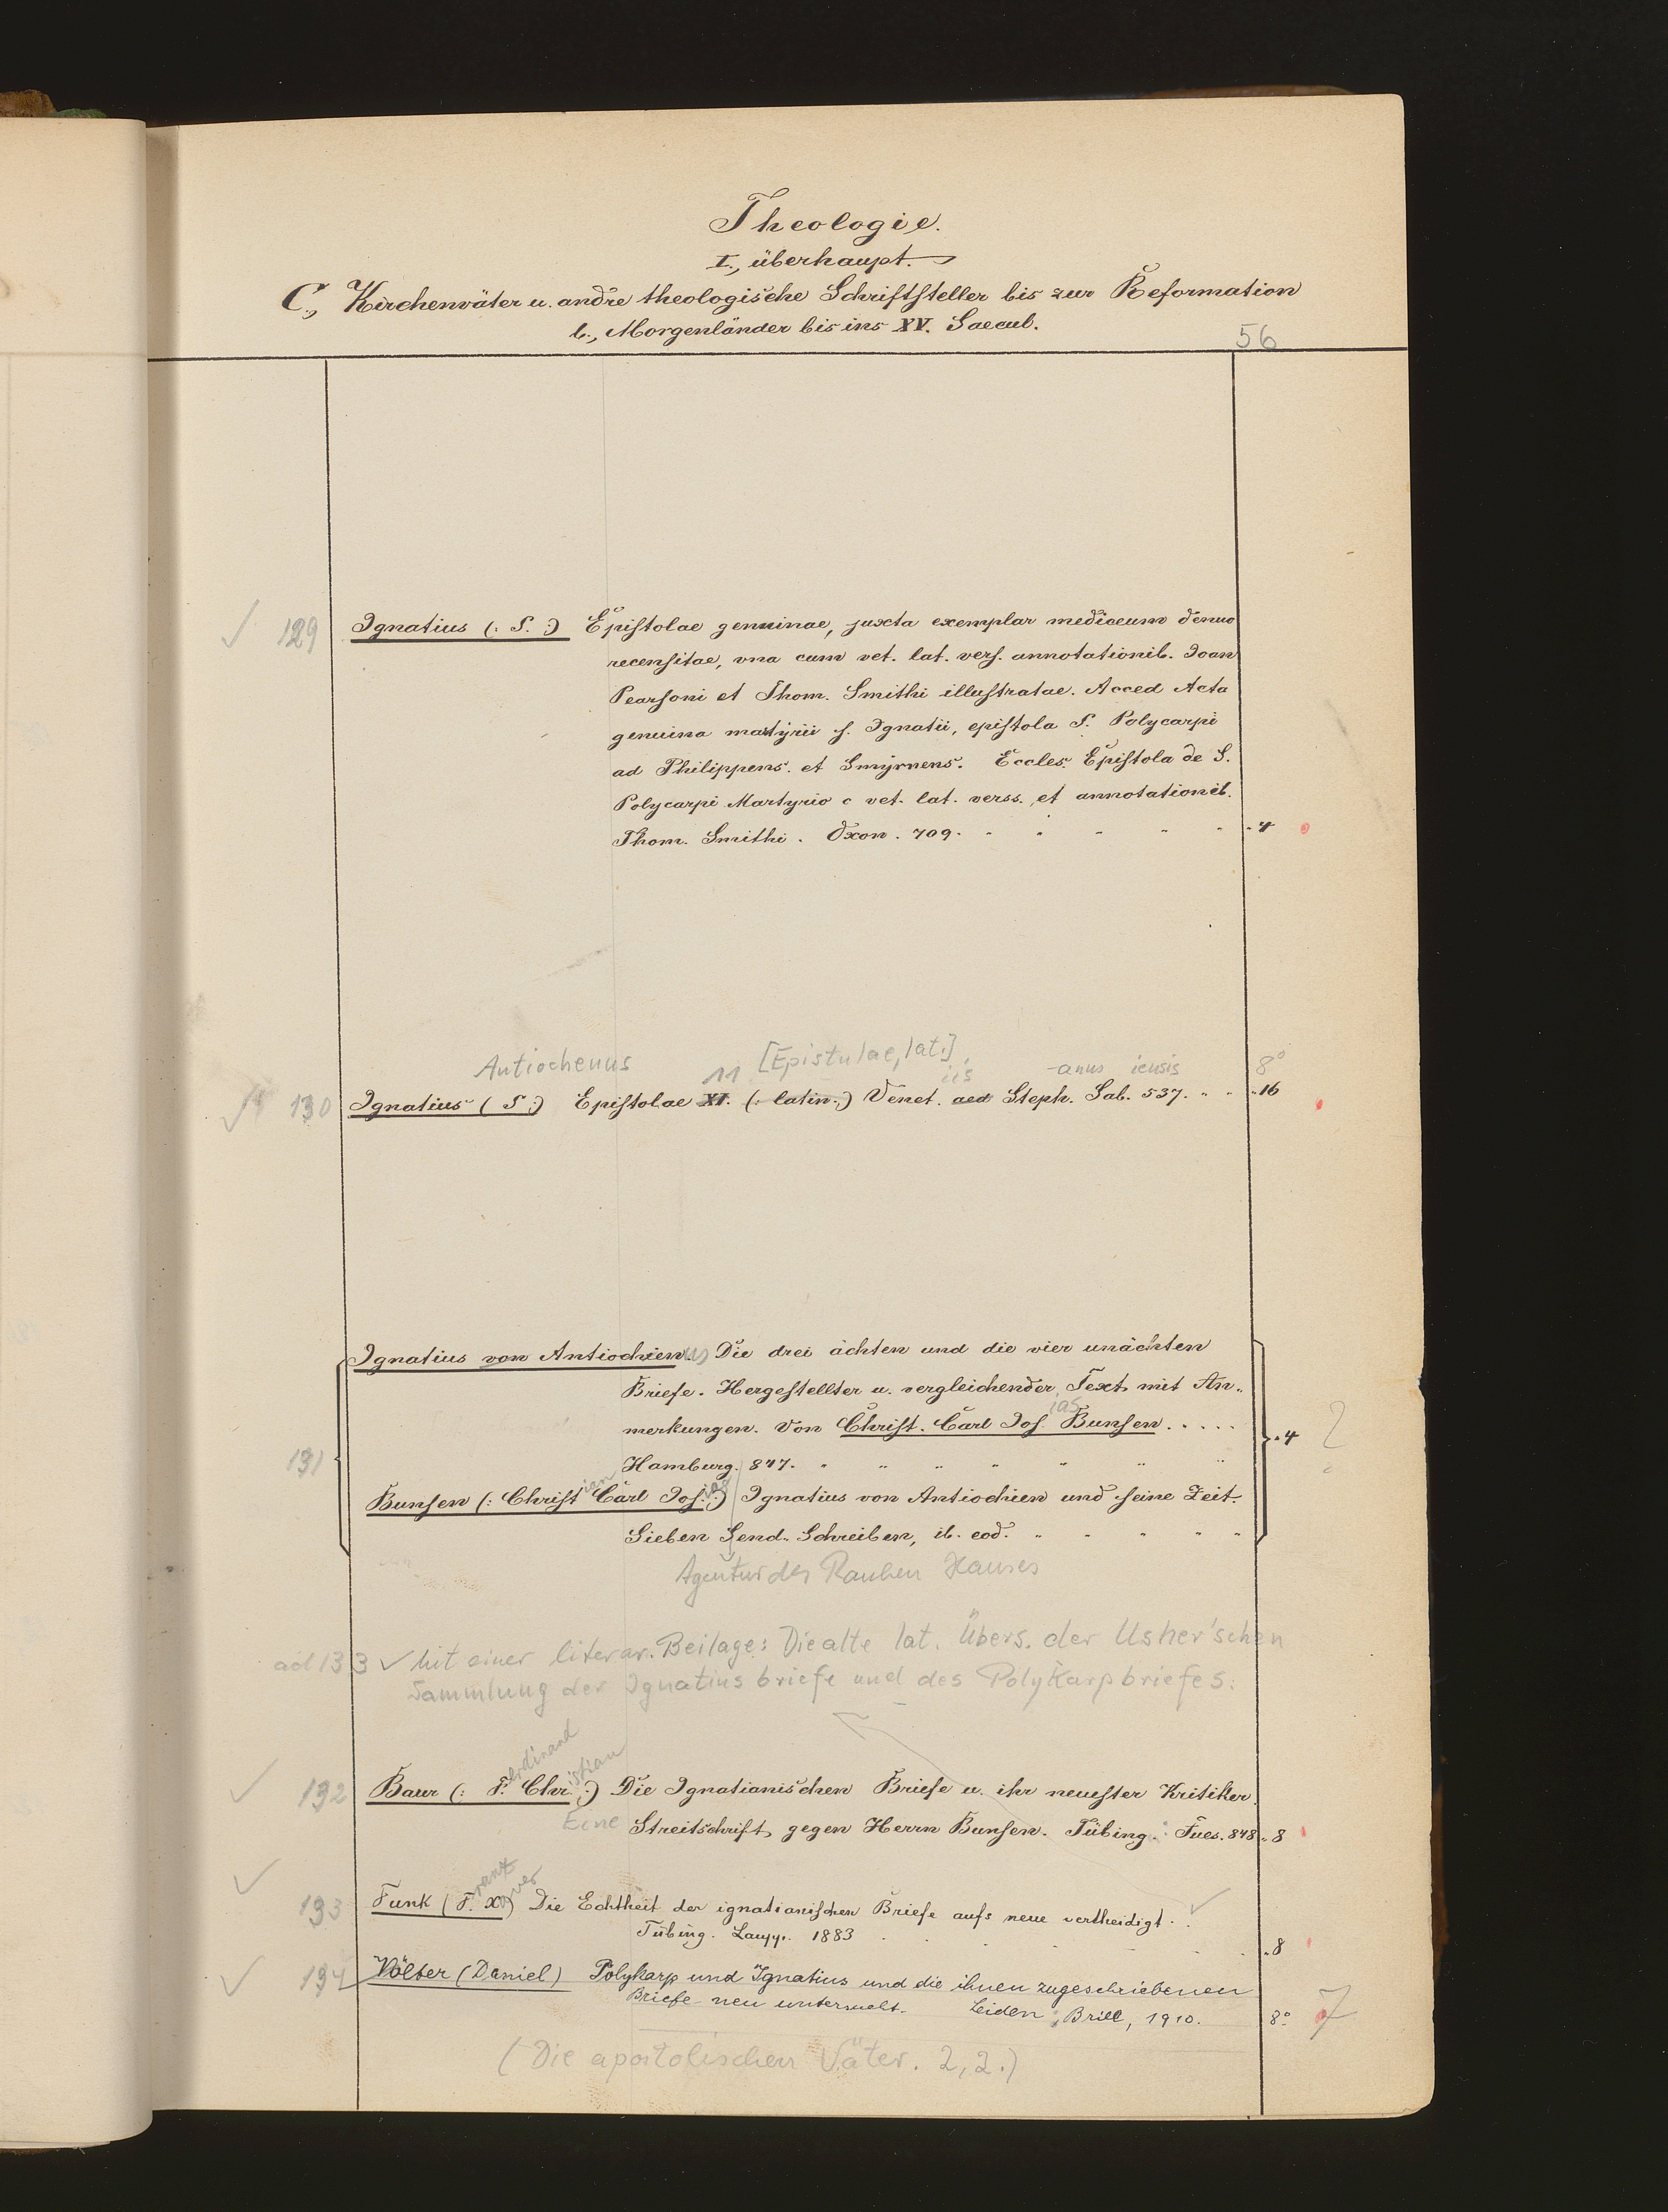 Theologie.
I., überhaupt.
C., Kirchenväter u. andre theologische Schriftsteller bis zur Reformation
b., Morgenländer bis ins XV. Saecul.
56
129 Ignatius (: S. :) Epistolae genuinae, juxta exemplar mediceum denuo
recensitae, vna cum vet. lat. vers. annotationib. Joan
Pearsoni et Thom. Smithi illustratae. Acced Acta
genuina martyrii s. Ignatii, epistola S. Polycarpi
ad Philippens. et Smyrnens. Eccles. Epistola de S.
Polycarpi Martyrio c vet. lat. verss. et annotationib.
Thom. Smithi. Oxon. 709. 4
Antiochenus 11 [Epistulae, lat.] iis -anus iensis 8°
130 Ignatius (S:) Epistolae XI. (: latin:) Venet. aed Steph. Sab. 537. 16
Ignatius von Antiochien (us) Die drei ächten und die vier unächten
Briefe. Hergestellter u. vergleichender Text mit An-
merkungen. Von Christ. Carl Jos. Bunsen . . . . .
ias
131 Hamburg. 847. 4 2
Bunsen (: Christian Carl Josias :) Ignatius von Antiochien und seine Zeit.
Sieben Send-Schreiben, ib. eod.
Agentur des Rauhen Hauses
ad 133 ✓ Mit einer literar. Beilage: Die alte lat. Übers. der Usher'schen
Sammlung der Ignatiusbriefe und des Polykarpbriefes.
132 Baur (: Ferdinand Christian :) Die Ignatianischen Briefe u. ihr neuester Kritiker.
Eine Streitschrift gegen Herrn Bunsen. Tübing. Fues. 848. 8
133 Funk (Franz Xaver) Die Echtheit der ignatianischen Briefe aufs neue vertheidigt.
Tübing. Laupp. 1883 8
134 Völter (Daniel) Polykarp und Ignatius und die ihnen zugeschriebenen
Briefe neu untersucht. Leiden, Brill, 1910. 8° 7
(Die apostolischen Väter. 2,2.)